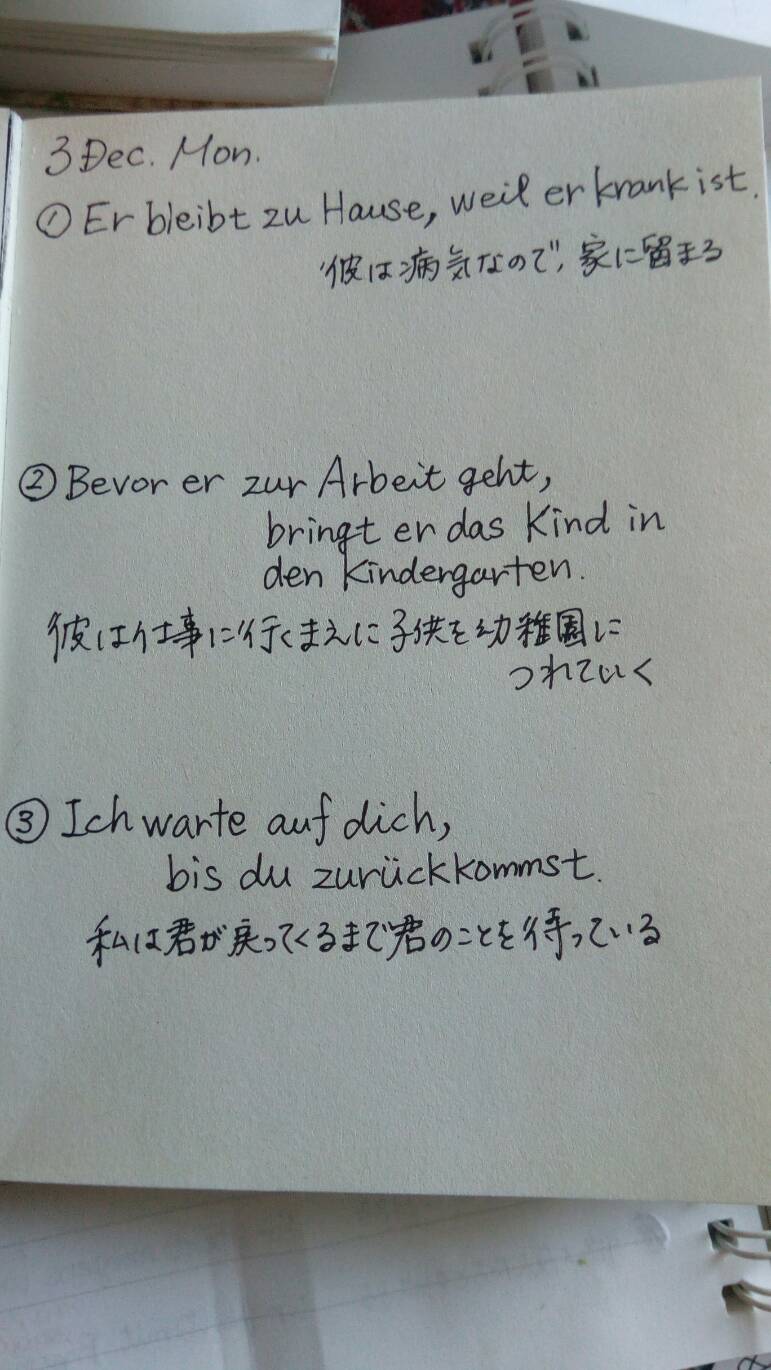 3 Dec. Mon.
① Er bleibt zu Hause, weil er krank ist.
彼は病気なので, 家に留まる
② Bevor er zur Arbeit geht,
bringt er das Kind in
den Kindergarten.
彼は仕事に行くまえに子供を幼稚園に
つれていく
③ Ich warte auf dich,
bis du zurückkommst.
私は君が戻ってくるまで君のことを待っている